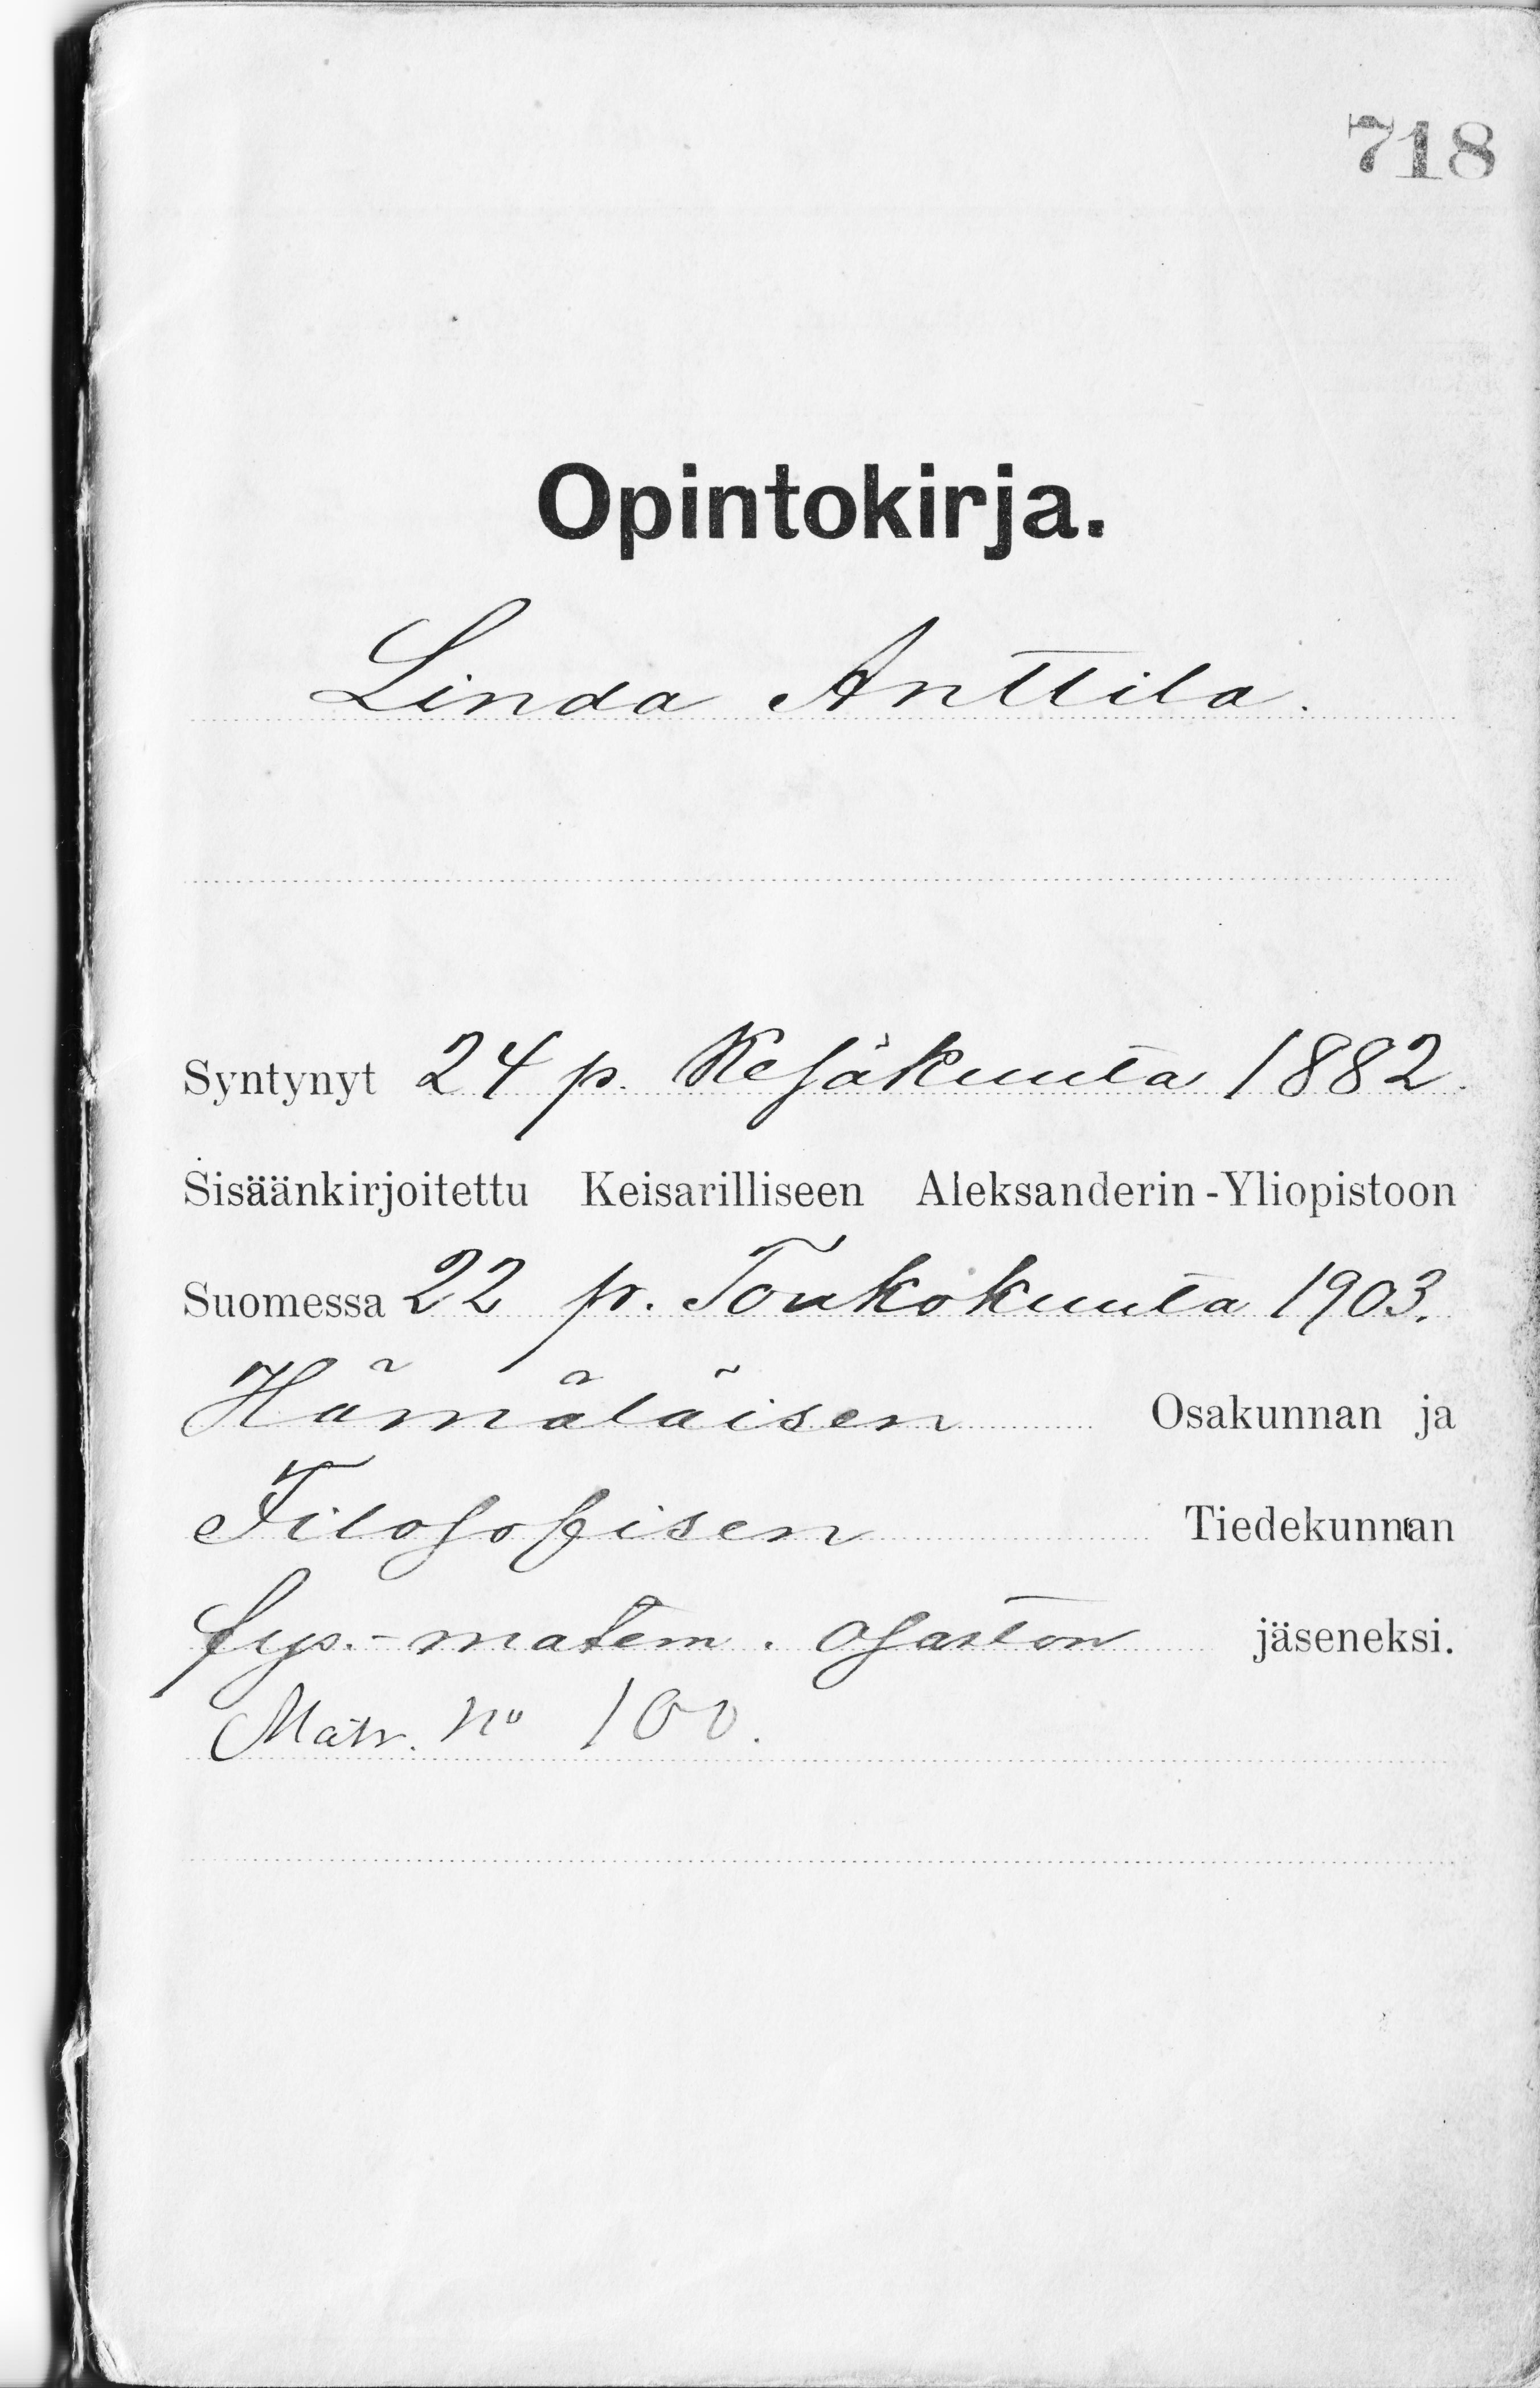 718
Opintokirja.
Linda Anttila.
Syntynyt 24 p. Kesäkuuta 1882.
Sisäänkirjoitettu Keisarilliseen Aleksanderin-Yliopistoon
Suomessa 22 p. Toukokuuta 1903.
Hämäläisen Osakunnan ja
Filosofisen Tiedekunnan
fys.-matem. osaston jäseneksi.
Matr. No 100.